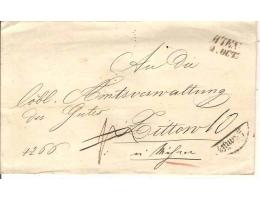 WIEN
2. OCT.
An die
löbl. Amtsverwaltung
des Gutes
Zittow
4266
in Mähren